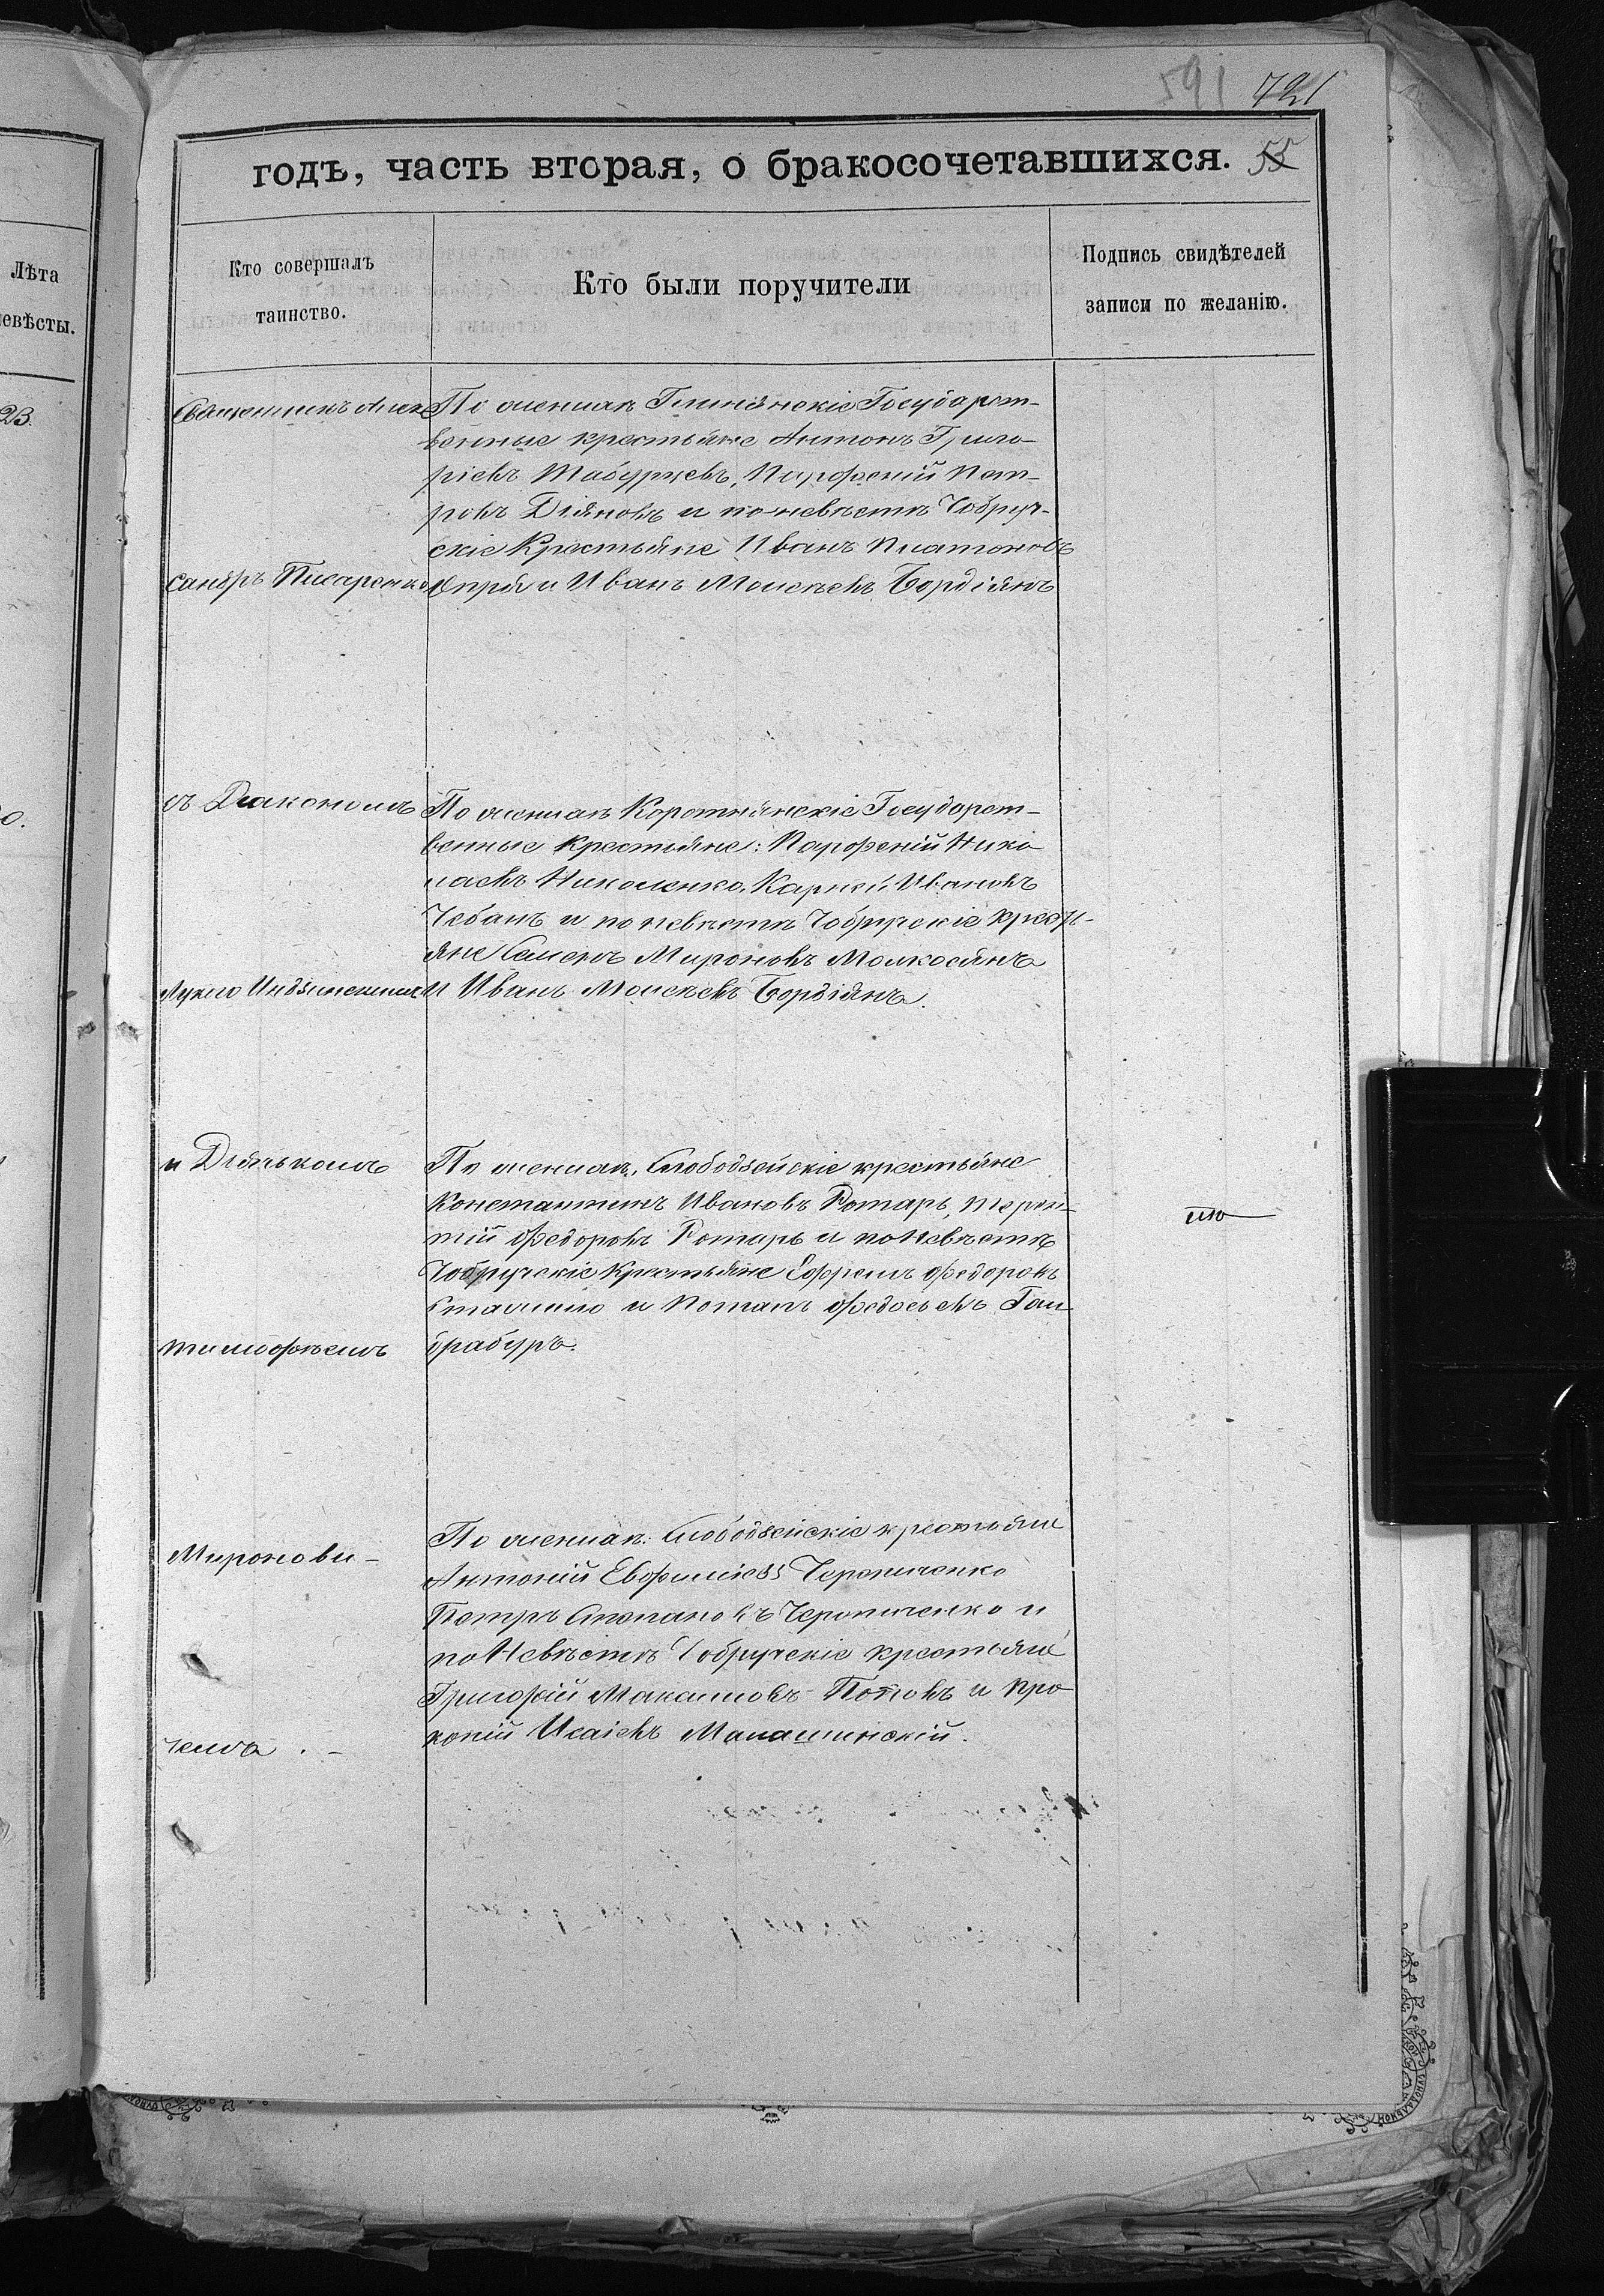 591 721
годъ, часть вторая, о бракосочетавшихся. 55
Лѣта
невѣсты.
23.
Кто совершалъ
таинство.
Кто были поручители
Подпись свидѣтелей
записи по желанію.
Священникъ Алек
сандръ Писаренко
съ Діакономъ
Лукою
и Дьячкомъ
тимофѣемъ
Миронови-
чемъ . -
По женихѣ Глинянскіе Государст-
венные крестьяне Антонъ Григо-
ріевъ Табуржевъ, Парфеній Пет-
ровъ Діяновъ и по невѣстѣ Чобруч-
скіе Крестьяне Иванъ Платоновъ
Опря и Иванъ Моисѣевъ Бордіянъ
По женихѣ Коротнянскіе Государст-
венные Крестьяне: Парфеній Нико
лаевъ Николенко, Карпей Ивановъ
Чебанъ и по невѣстѣ Чобручскіе кресть-
яне Семенъ Мироновъ Молкосянъ
и Иванъ Моисѣевъ Бордіянъ.
По женихѣ, Слободзейскіе крестьяне
Константинъ Ивановъ Ротарь, терен-
тій Федоровъ Ротарь и по Невѣстѣ
Чобручскіе Крестьяне Ефремъ Федоровъ
и Потапъ Федосѣевъ Гай
драбуръ.
По женихѣ: Слободзейскіе крестьяне
Антоній Евфиміевъ Черониченко
Петръ Степановъ Черониченко и
по Невѣстѣ Чобручскіе крестьяне
Григорій Максимовъ Поповъ и Про
копій Исаіевъ Малашинскій.